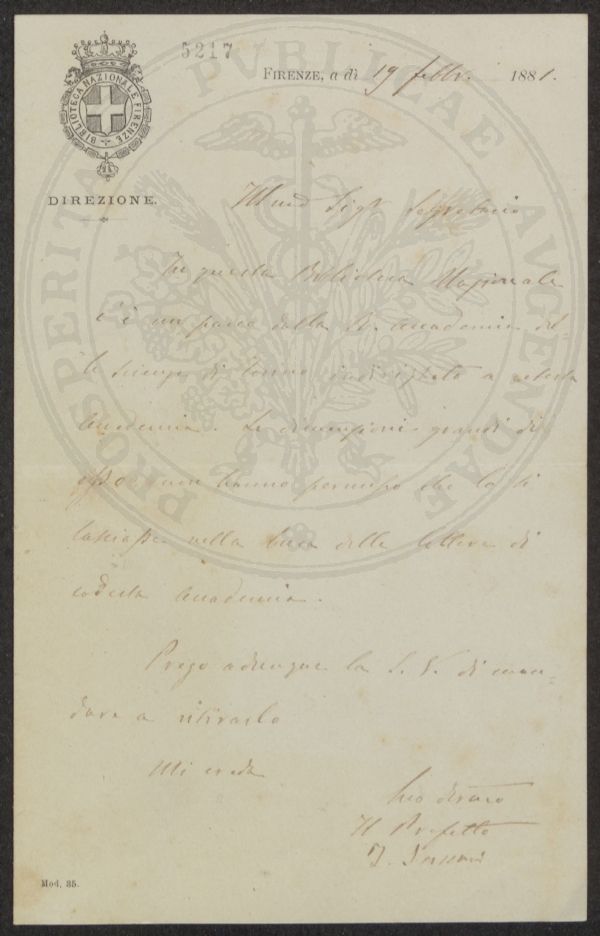 5217
BIBLIOTECA NAZIONALE FIRENZE
FIRENZE, a dì 19 febbr. 1881.
DIREZIONE.
PROSPERITATI PVBLICAE AVGENDAE
Illmo Sigr Segretario
In questa Biblioteca Nazionale
c'è un pacco della R. Accademia del-
le scienze di indirizzato a codesta
Accademia. Le dimensioni grandi di
esso non hanno permesso che lo si
lasciasse nella buca delle lettere di
codesta Accademia.
Prego adunque la S. V. di man-
dare a ritirarlo
Mi creda
Suo devmo
Il Prefetto
Mod. 35.